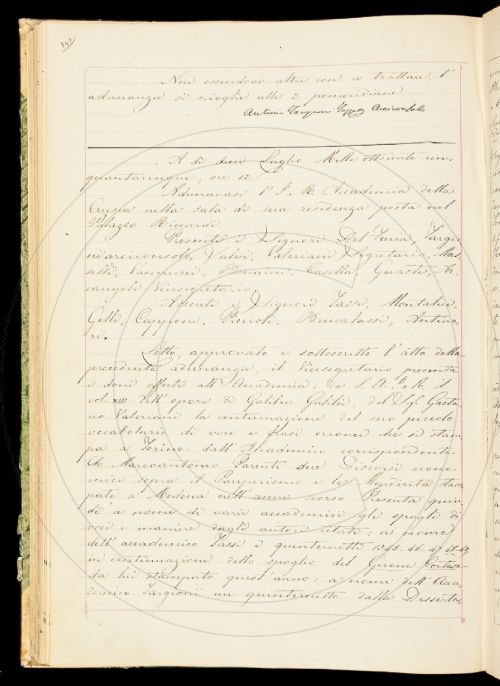 Non essendovi altre cose a trattare, l'
adunanza si scioglie alle 2 pomeridiane
Antonio Targioni Tozzetti Arciconsolo
A dì Luglio Mille ottocento cin-
quantacinque, ore 12.
Adunavasi l'I. e R. Accademia della
Crusca nella sala di sua residenza posta nel
Palazzo Riccardi.
Presenti i Signori Del Furia, Targio
ni arciconsolo, Segretario, Mas
selli, Vannucci, Casella, Guasti, Ar
cangeli Vicesegretario.
Assenti i Signori Tassi, Montalvi,
Gelli, Capponi, Bencini, Brucalassi, Antino
ri.
Letto, approvato e sottoscritto l'atto della
precedente adunanza, il Vicesegretario presenta
i doni offerti all'Accademia, da S. A. I. e R. il
vol. XIII dell'opere di Galileo Galilei, del Sig. Gaeta
no Valeriani la continuazione del suo piccolo
vocabolario di voci e frasi erronee che si stam
pa a Torino: dall'Accademico corrispondente
Cav. Marcantonio Parenti due Discorsi econo-
mici sopra il Pauperismo e la Mendicità stam
pate a Modena nell'anno scorso. Presenta quin
di a nome di varii accademici gli spogli di
voci e maniere dagli autori citati: a nome
dell'accademico Tassi i quinternetti
in continuazione dello spoglio del Girone Cortese
da lui stampato quest'anno: a nome dell'Acca
demico Targioni un quinternetto dalla Disserta